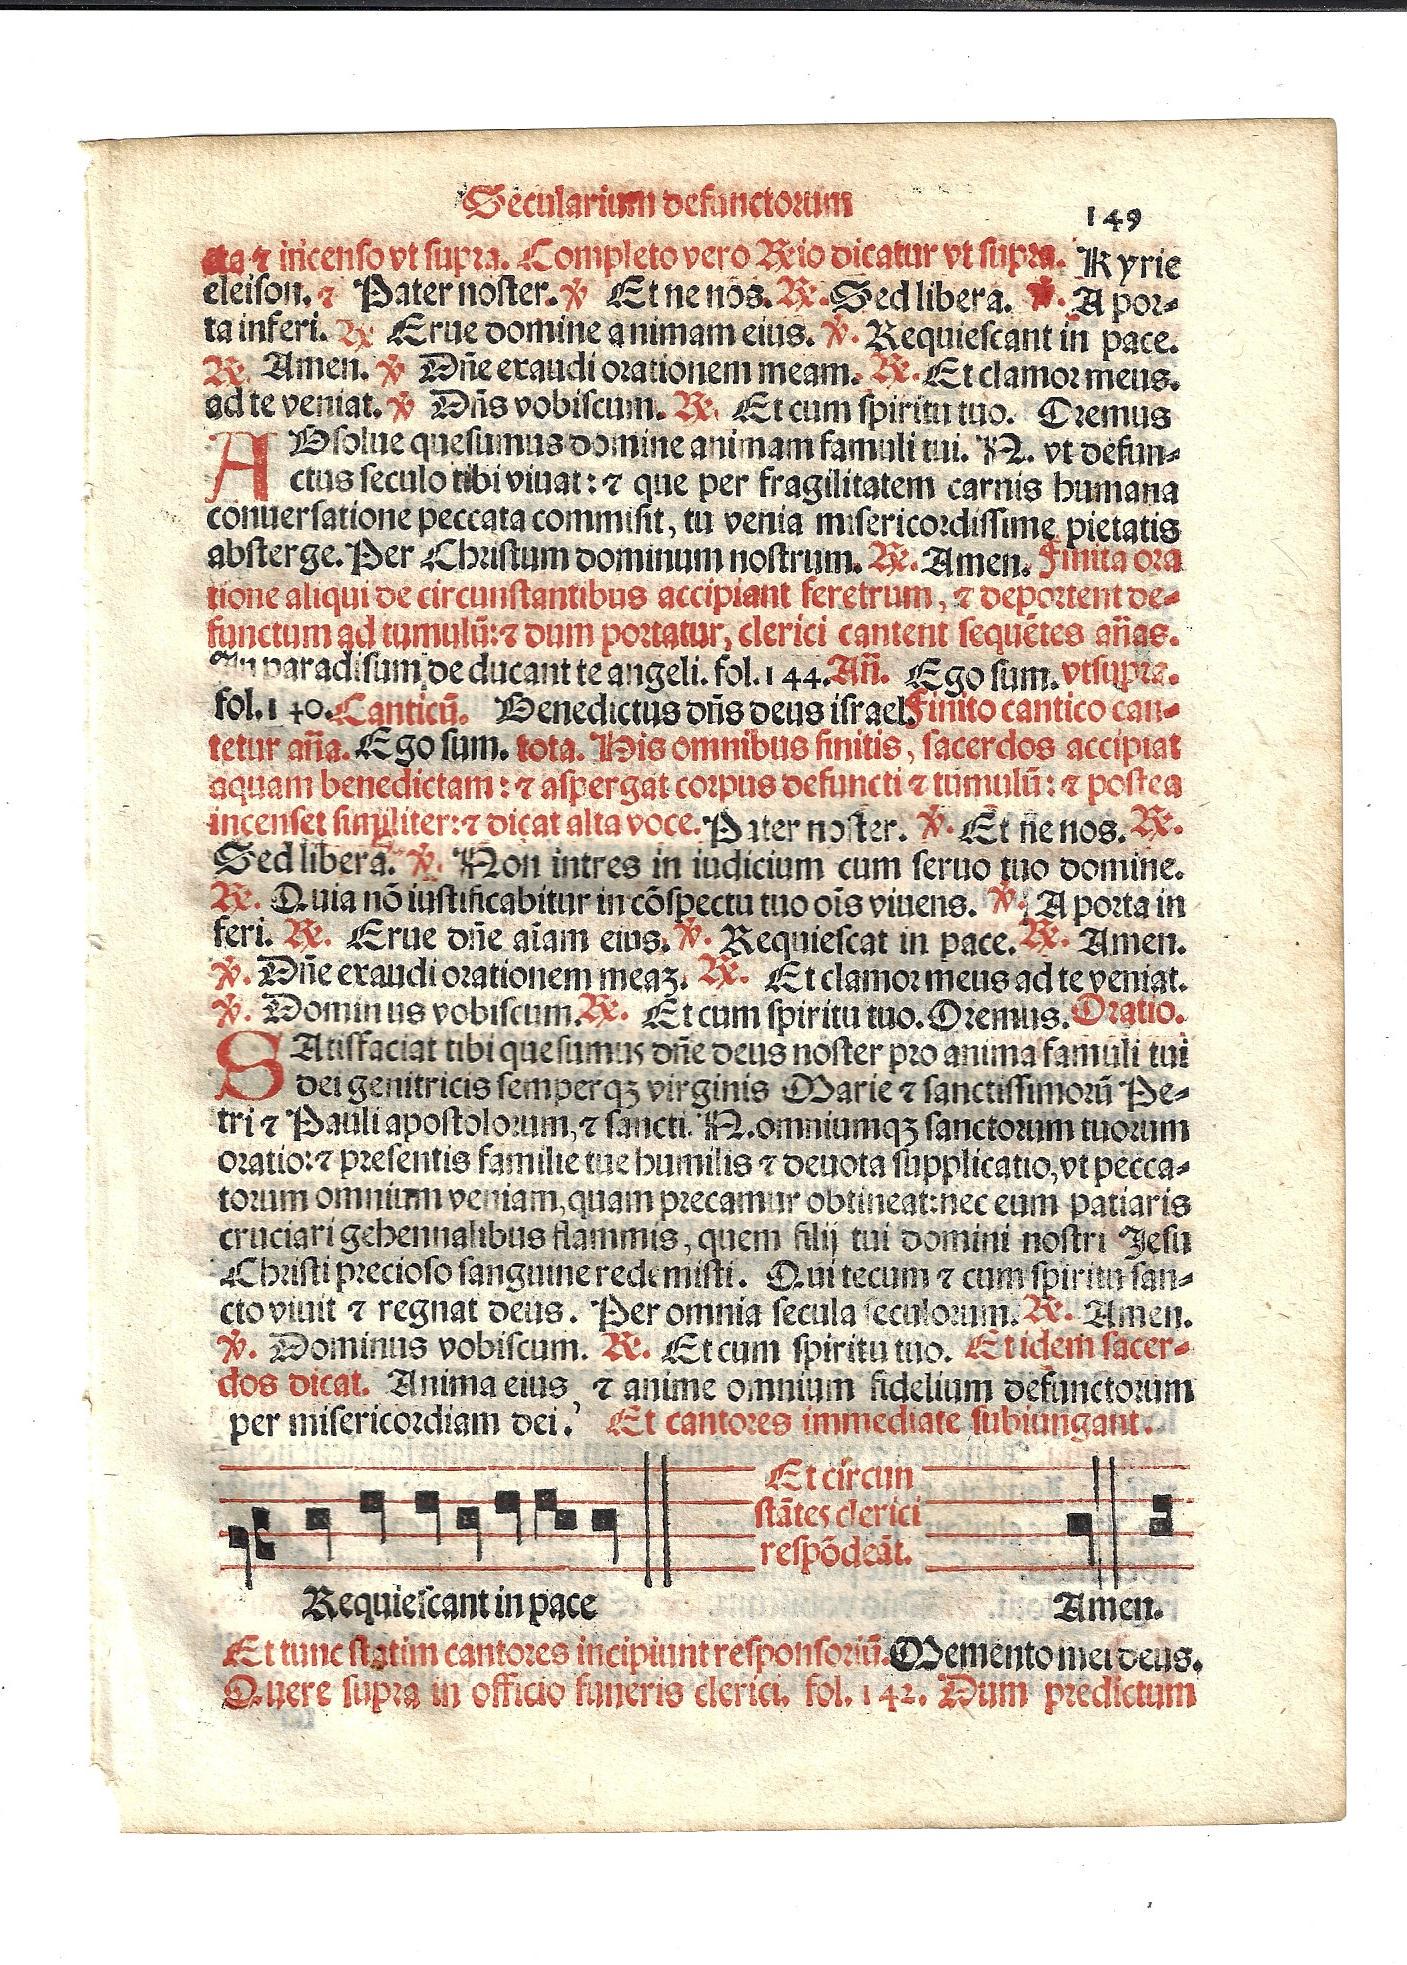 Secularium defunctorum
149
cta ⁊ incenso vt supra. Completo vero R℟io dicatur vt supra. Kyrie
eleison. ⁊ Pater noster. ℣ Et ne nos. ℟. Sed libera. ℣. A por-
ta inferi. ℟ Erue domine animam eius. ℣. Requiescant in pace.
℟. Amen. ℣ Dñe exaudi orationem meam. ℟. Et clamor meus.
ad te veniat. ℣ Dñs vobiscum. ℟. Et cum spiritu tuo. Oremus
ABsolue quesumus domine animam famuli tui. N. vt defun-
ctus seculo tibi viuat: ⁊ que per fragilitatem carnis humana
conuersatione peccata commisit, tu venia misericordissime pietatis
absterge. Per Christum dominum nostrum. ℟. Amen. Finita ora
tione aliqui de circunstantibus accipiant feretrum, ⁊ deportent de-
functum ad tumulũ: ⁊ dum portatur, clerici cantent sequẽtes añas.
In paradisum de ducant te angeli. fol. 144. Añ. Ego sum. vt supra.
fol. 140. Canticũ. Benedictus dñs deus israel. Finito cantico can-
tetur aña. Ego sum. tota. His omnibus finitis, sacerdos accipiat
aquam benedictam: ⁊ aspergat corpus defuncti ⁊ tumulũ: ⁊ postea
incenset similiter: ⁊ dicat alta voce. Pater noster. ℣. Et ne nos. ℟.
Sed libera. ℣. Non intres in iudicium cum seruo tuo domine.
℟. Quia nõ iustificabitur in cõspectu tuo oĩs viuens. ℣. A porta in
feri. ℟. Erue dñe aĩam eius. ℣. Requiescat in pace. ℟. Amen.
℣. Dñe exaudi orationem meaꝫ. ℟. Et clamor meus ad te veniat.
℣. Dominus vobiscum. ℟. Et cum spiritu tuo. Oremus. Oratio.
SAtisfaciat tibi quesumus dñe deus noster pro anima famuli tui
dei genitricis semperqꝫ virginis Marie ⁊ sanctissimorũ Pe-
tri ⁊ Pauli apostolorum, ⁊ sancti. N. omniumqꝫ sanctorum tuorum
oratio: ⁊ presentis familie tue humilis ⁊ deuota supplicatio, vt pecca-
torum omnium veniam, quam precamur obtineat: nec eum patiaris
cruciari gehennalibus flammis, quem filij tui domini nostri Jesu
Christi precioso sanguine redemisti. Qui tecum ⁊ cum spiritu san-
cto viuit ⁊ regnat deus. Per omnia secula seculorum. ℟. Amen.
℣. Dominus vobiscum. ℟. Et cum spiritu tuo. Et idem sacer-
dos dicat. Anima eius ⁊ anime omnium fidelium defunctorum
per misericordiam dei. Et cantores immediate subiungant.
Et circun
stãtes clerici
respõdeãt.
Requiescant in pace Amen.
Et tunc statim cantores incipiunt responsoriũ. Memento mei deus.
Quere supra in officio funeris clerici. fol. 142. Dum predictum